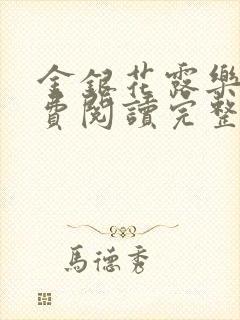 金銀花露樂
費閱讀完整
馬德秀